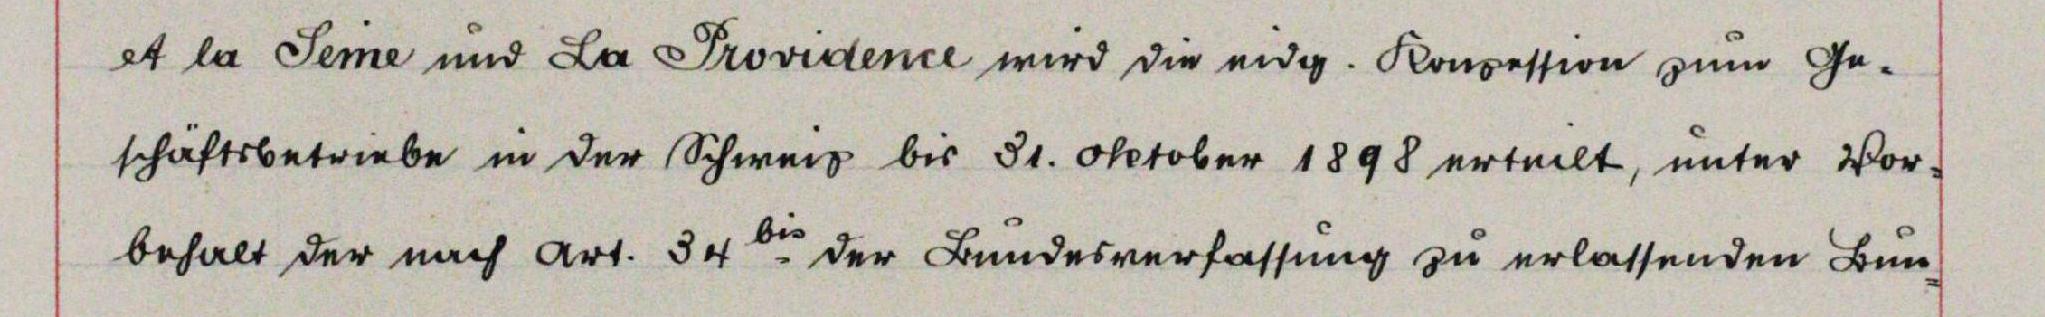 et la Seine und La Providence wird die eidg. Konzession zum Ge-
schäftsbetriebe in der Schweiz bis 31. Oktober 1898 erteilt, unter Vor-
behalt der nach Art. 34 bis der Bundesverfassung zu erlassenden Bun-